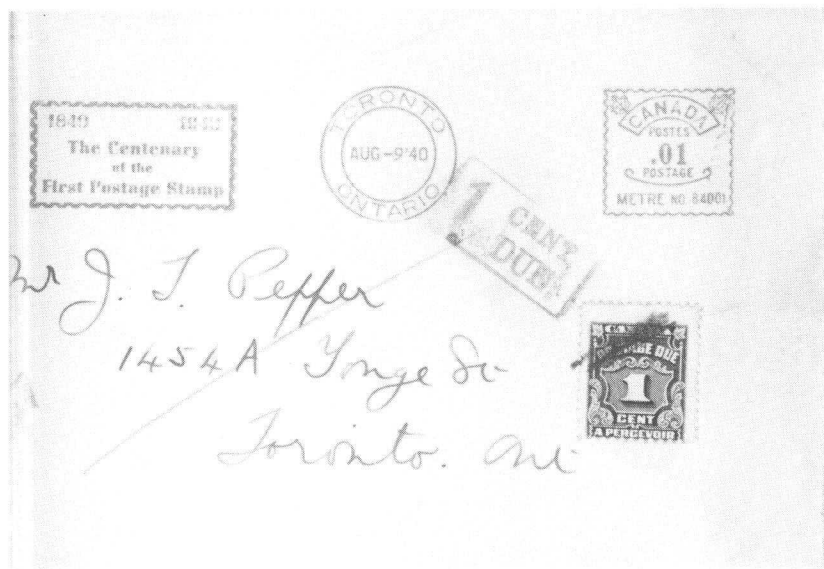 1840 1940
The Centenary
of the
First Postage Stamp
TORONTO
AUG-9'40
ONTARIO
CANADA
POSTES
.01
POSTAGE
METRE NO. 84001
1 CENT
DUE
Mr J. T. Pepper
1454A Yonge St
Toronto. Ont
POSTAGE DUE
1
CENT
A PERCEVOIR